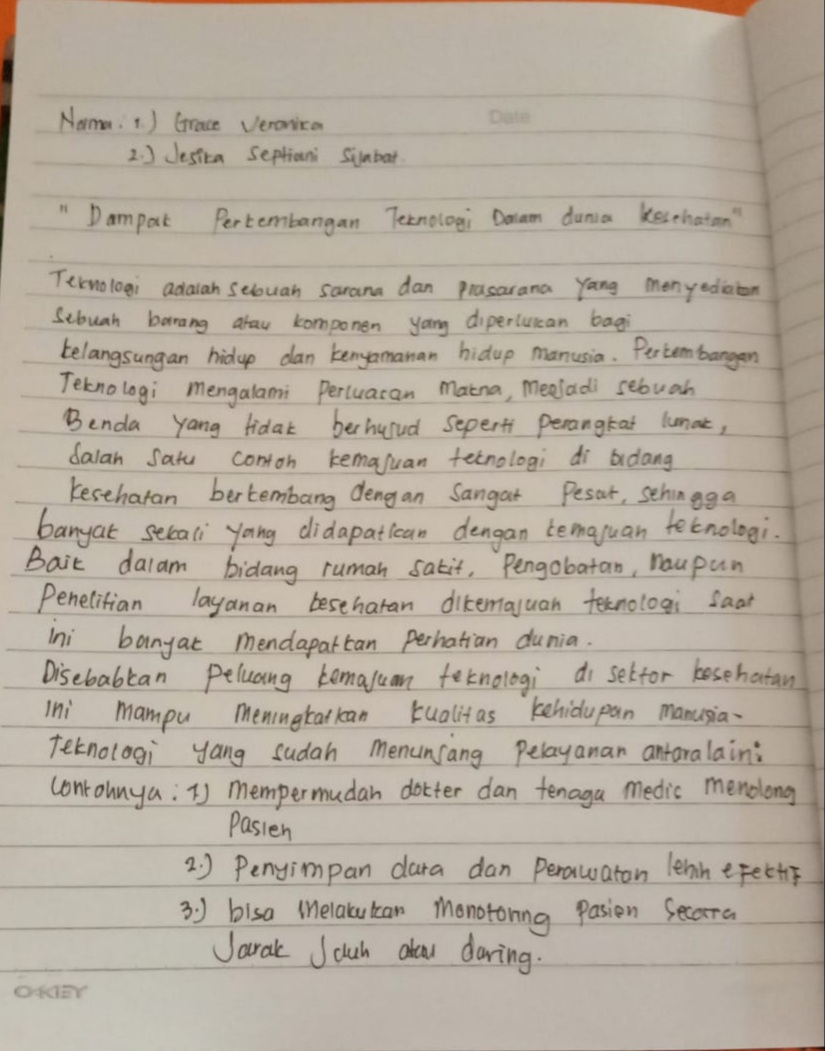 Nama: 1.) Grace Veronica
Date
2.) Jesika Septiani Silabat.
" Dampak Perkembangan Teknologi Dalam dunia kesehatan"
Teknologi adalah sebuah sarana dan prasarana yang menyediakan
sebuah barang atau komponen yang diperlukan bagi
kelangsungan hidup dan kenyamanan hidup manusia. Perkembangan
Teknologi mengalami Perluasan makna, menjadi sebuah
Benda yang tidak berhujud seperti perangkat lunak,
salah satu contoh kemajuan teknologi di bidang
kesehatan berkembang dengan sangat Pesat, sehingga
banyak sekali yang didapatkan dengan kemajuan teknologi.
Baik dalam bidang rumah sakit, Pengobatan, maupun
Penelitian layanan kesehatan dikemajuan teknologi saat
ini banyak mendapatkan Perhatian dunia.
Disebabkan peluang kemajuan teknologi di sektor kesehatan
ini mampu meningkatkan kualitas kehidupan manusia-
Teknologi yang sudah menunjang Pelayanan antara lain:
Contohnya: 1) mempermudah dokter dan tenaga medic menolong
Pasien
2.) Penyimpan data dan Perawatan lebih efektif
3.) bisa melakukan Monotoring Pasien Secara
Jarak Jauh atau daring.
O-KEY